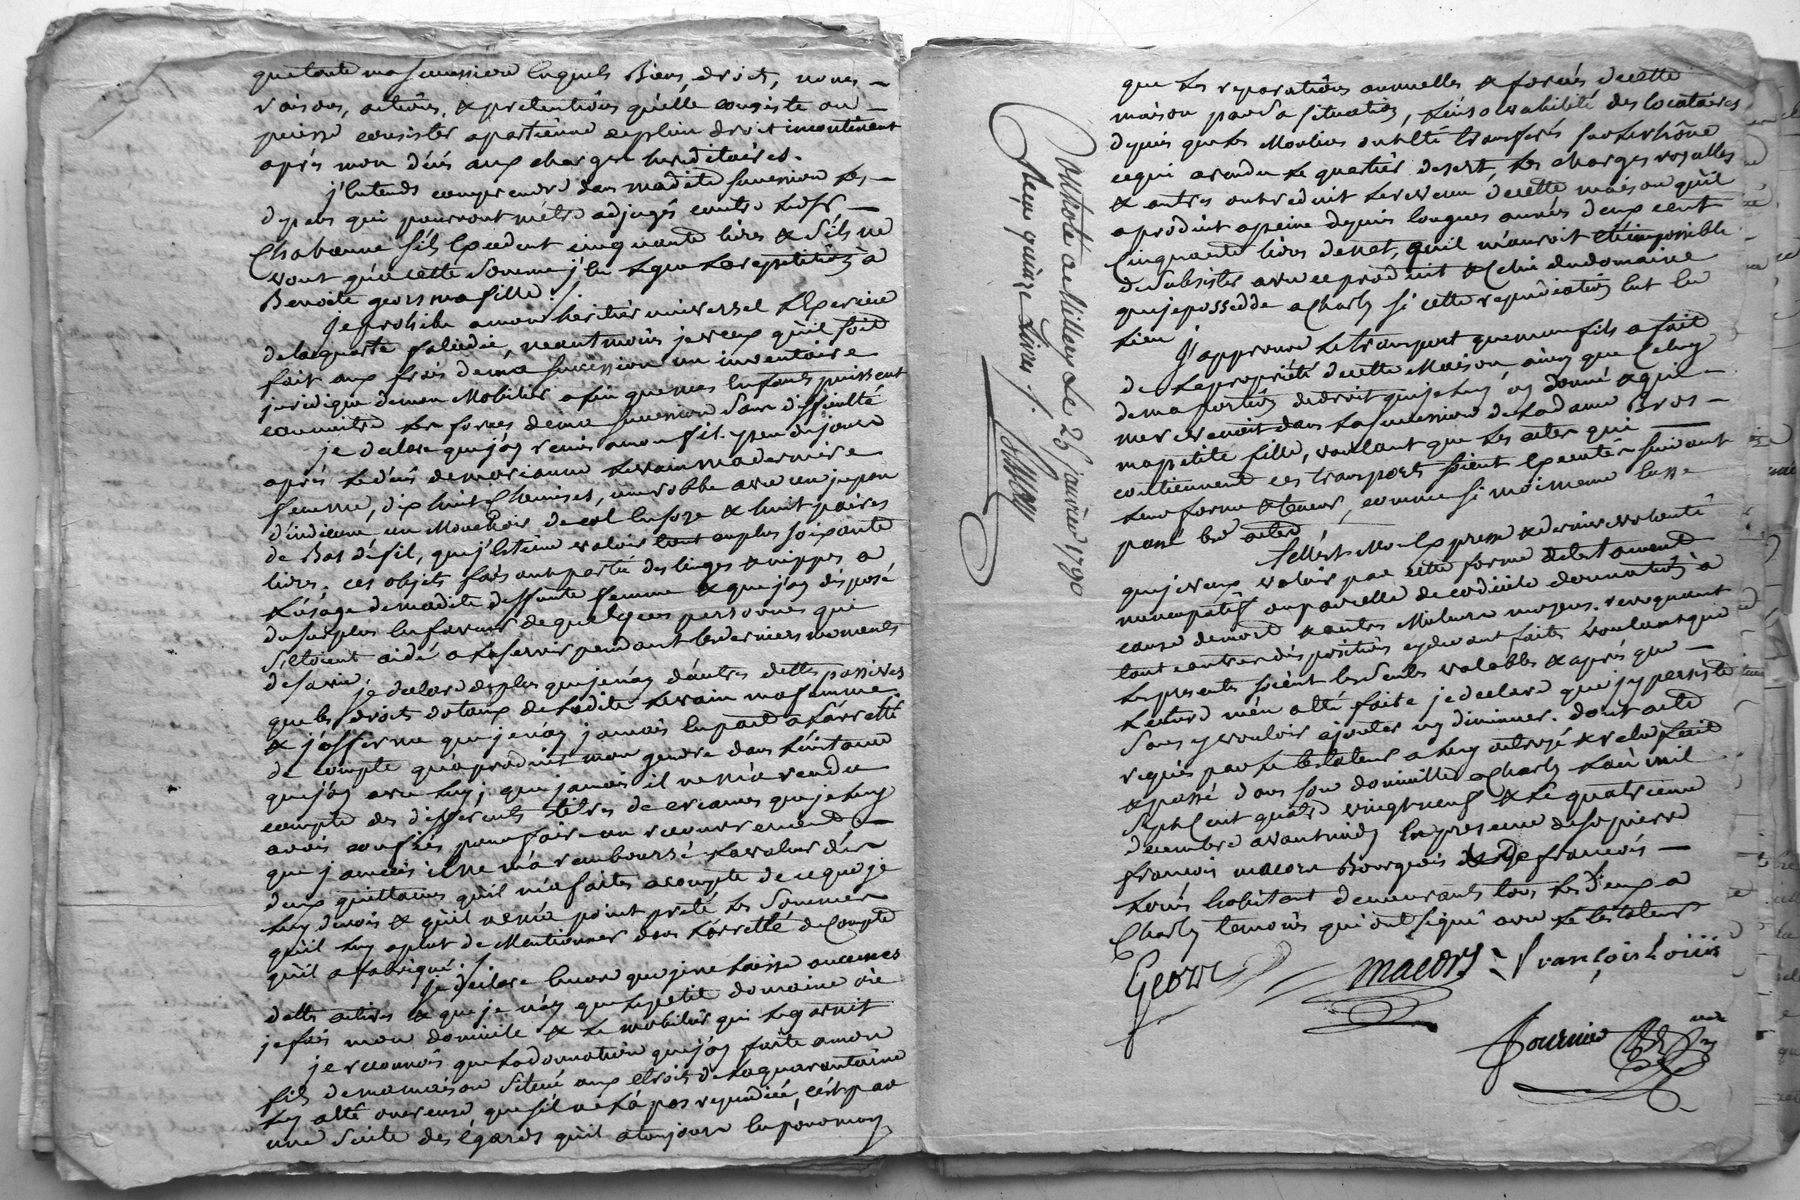 que toute ma succession lesquels Biens, droits, noms,
raisons, actions, & pretentions qu'elle consiste ou
puisse consister apartienne de plein droit incontinent
aprés mon décés aux charges hereditaires.
j'Entends comprendre dans madite succession les
depens qui pourront m'étre adjugés contre
Chabanne s'ils Excedent cinquante livres & s'ils ne
vont qu'a cette somme j'en legue la repetition à
Benoite geors ma fille ./.
Je prohibe a mon heritier universel
de la quarte falcidie, neantmoins je veux qu'il soit
fait aux frais de ma succession un inventaire
juridique de mon Mobilier afin que mes Enfants puissent
connoitre les forces de ma succession sans difficulté
je declare que j'ay remis a mon fils peu de jours
aprés le décés de marianne ma derniere
femme, dix huit Chemises, une robbe avec un jupon
d'indienne un Mouchoir de col en soye & huit paires
de Bas de fil, que j'Estime valoir tout au plus soixante
livres. ces objets fais ant partie des linges & nippes a
L'usage de madite deffunte femme & que j'ay disposé
du surplus en faveur de quelques personnes qui
s'Etoient aidé a la servir pendant les derniers moments
de sa vie.
je declare de plus que je n'ay d'autres dettes passives
que les droits dotaux de ladite ma femme
& j'affirme que je n'ay jamais Eu part a L'arretté
de compte qu'a produit mon gendre dans L'instance
que j'ay avec luy; que jamais il ne m'a rendu
compte des differents titres de creances que je luy
avois confiés pour faire un recouvrement
que jamais il ne m'a remboursé la valeur des
deux quittances qu'il m'a faites acompte de ce que je
luy devois & qu'il ne m'a point preté les sommes
qu'il luy a plut de Mentionner dans L'arretté de Compte
qu'il a fabriqué ./.
Je declare Encore que je ne laisse aucunes
dettes actives & que je n'ay que le petit domaine ou
je fais mon domicile & le mobilier qui le garnit
je reconnois que la donnation que j'ay faite a mon
fils de ma maison Situeé aux Etroits de la quarantaine
luy a été onereuse que s'il ne l'a pas repudiée, c'est par
une suite des égards qu'il a toujours Eu pour moy
Controlé a Millery Le 25 janvier 1790
Reçu quinze Livres ./.
que les reparations annuelles & forcées de cette
maison par sa situation, l'insolvabilité des locataires
depuis que les Moulins ont Eté transferés sur le rhône
ce qui a rendu le quartier desert, les charges royalles
& autres ont reduit le revenu de cette maison qu'il
a produit a peine depuis longues années deux cent
Cinquante livres de net, qu'il m'auroit Eté impossible
de subsister avec ce produit & Celui du domaine
que je possedde a Charly si cette repudiation Eut Eu
Lieu
J'approuve le transport que mon fils a fait
de la proprieté de cette Maison ainsy que Celuy
de ma portion de droit que je luy ay donné & qui
me revenoit dans la succession de la dame Bros
ma petite fille, voullant que les actes qui
contiennent ces transports soient Executés suivant
leur forme & teneur, comme si moi meme Eusse
passé les actes
telle Est Mon Expresse & derniere volonté
que je veux valoir par cette forme de testament
nuncupatif ou par celle de codicile donnation à
cause de mort & autres Meilleurs moyens. revoquant
toutes autres dispositions cy devant faites voulant que
les presentes soient les seules valables & aprés que
lecture m'en a été faite je declare que j'y persiste
sans y vouloir ajouter ny diminuer. dont acte
requis par le testateur a luy octroyé & relu fait
& passé dans son domicille a Charly L'an mil
sept Cent quatre vingt neuf & le quatrieme
decembre avant midy En presence de sr. pierre
francois macors Bourgeois & De francois
Loüis habitant demeurants tous les deux a
Charly temoins qui ont signé avec le testateur
Geors
macors
François Loüis
fournier